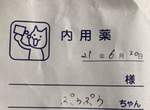 内用薬
21年6月20日
様
ぷうぷう ちゃん